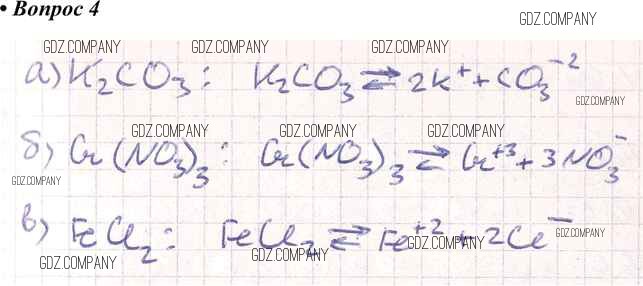 • Вопрос 4
GDZ.COMPANY
GDZ.COMPANY GDZ.COMPANY GDZ.COMPANY
а) K₂CO₃ : K₂CO₃ ⇄ 2K⁺ + CO₃⁻²
GDZ.COMPANY
GDZ.COMPANY GDZ.COMPANY GDZ.COMPANY
б) Cr(NO₃)₃ : Cr(NO₃)₃ ⇄ Cr⁺³ + 3NO₃⁻
GDZ.COMPANY
в) FeCl₂ : FeCl₂ ⇄ Fe⁺² + 2Cl⁻
GDZ.COMPANY GDZ.COMPANY
GDZ.COMPANY GDZ.COMPANY